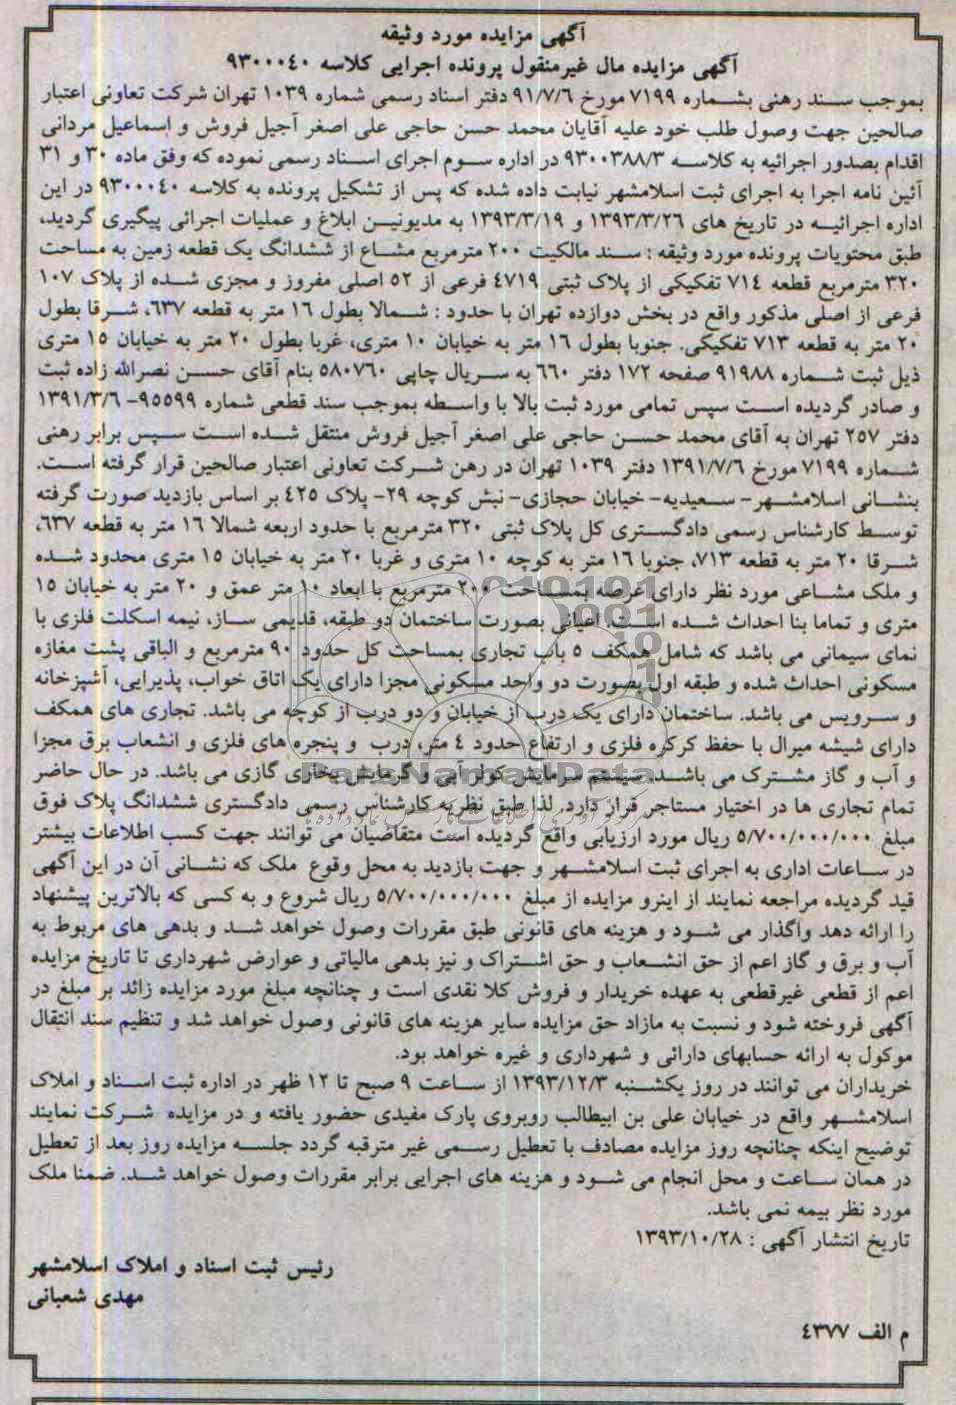 آگهی مزایده مورد وثیقه
آگهی مزایده مال غیرمنقول پرونده اجرایی کلاسه ۹۳۰۰۰۴۰
بموجب سند رهنی بشماره ۷۱۹۹ مورخ ۹۱/۷/۶ دفتر اسناد رسمی شماره ۱۰۳۹ تهران شرکت تعاونی اعتبار
صالحین جهت وصول طلب خود علیه آقایان محمد حسن حاجی علی اصغر آجیل فروش و اسماعیل مردانی
اقدام بصدور اجرائیه به کلاسه ۹۳۰۰۳۸۸/۳ در اداره سوم اجرای اسناد رسمی نموده که وفق ماده ۳۰ و ۳۱
آئین نامه اجرا به اجرای ثبت اسلامشهر نیابت داده شده که پس از تشکیل پرونده به کلاسه ۹۳۰۰۰۴۰ در این
اداره اجرائیه در تاریخ های ۱۳۹۳/۳/۲۶ و ۱۳۹۳/۳/۱۹ به مدیونین ابلاغ و عملیات اجرائی پیگیری گردید،
طبق محتویات پرونده مورد وثیقه : سند مالکیت ۲۰۰ مترمربع مشاع از ششدانگ یک قطعه زمین به مساحت
۳۲۰ مترمربع قطعه ۷۱۴ تفکیکی از پلاک ثبتی ۴۷۱۹ فرعی از ۵۲ اصلی مفروز و مجزی شده از پلاک ۱۰۷
فرعی از اصلی مذکور واقع در بخش دوازده تهران با حدود : شمالا بطول ۱۶ متر به قطعه ۶۳۷، شرقا بطول
۲۰ متر به قطعه ۷۱۳ تفکیکی. جنوبا بطول ۱۶ متر به خیابان ۱۰ متری، غربا بطول ۲۰ متر به خیابان ۱۵ متری
ذیل ثبت شماره ۹۱۹۸۸ صفحه ۱۷۲ دفتر ۶۶۰ به سریال چاپی ۵۸۰۷۶۰ بنام آقای حسن نصرالله زاده ثبت
و صادر گردیده است سپس تمامی مورد ثبت بالا با واسطه بموجب سند قطعی شماره ۹۵۵۹۹- ۱۳۹۱/۳/۶
دفتر ۲۵۷ تهران به آقای محمد حسن حاجی علی اصغر آجیل فروش منتقل شده است سپس برابر رهنی
شماره ۷۱۹۹ مورخ ۱۳۹۱/۷/۶ دفتر ۱۰۳۹ تهران در رهن شرکت تعاونی اعتبار صالحین قرار گرفته است.
بنشانی اسلامشهر- سعیدیه- خیابان حجازی- نبش کوچه ۲۹- پلاک ۴۲۵ بر اساس بازدید صورت گرفته
توسط کارشناس رسمی دادگستری کل پلاک ثبتی ۳۲۰ مترمربع با حدود اربعه شمالا ۱۶ متر به قطعه ۶۳۷،
شرقا ۲۰ متر به قطعه ۷۱۳، جنوبا ۱۶ متر به کوچه ۱۰ متری و غربا ۲۰ متر به خیابان ۱۵ متری محدود شده
و ملک مشاعی مورد نظر دارای عرصه بمساحت ۲۰۰ مترمربع با ابعاد ۱۰ متر عمق و ۲۰ متر به خیابان ۱۵
متری و تماما بنا احداث شده است. اعیانی بصورت ساختمان دو طبقه، قدیمی ساز، نیمه اسکلت فلزی با
نمای سیمانی می باشد که شامل همکف ۵ باب تجاری بمساحت کل حدود ۹۰ مترمربع و الباقی پشت مغازه
مسکونی احداث شده و طبقه اول بصورت دو واحد مسکونی مجزا دارای یک اتاق خواب، پذیرایی، آشپزخانه
و سرویس می باشد. ساختمان دارای یک درب از خیابان و دو درب از کوچه می باشد. تجاری های همکف
دارای شیشه میرال با حفظ کرکره فلزی و ارتفاع حدود ۴ متر، درب و پنجره های فلزی و انشعاب برق مجزا
و آب و گاز مشترک می باشد سیستم سرمایش کولر آبی و گرمایش بخاری گازی می باشد. در حال حاضر
تمام تجاری ها در اختیار مستاجر قرار دارد. لذا طبق نظریه کارشناس رسمی دادگستری ششدانگ پلاک فوق
مبلغ ۵/۷۰۰/۰۰۰/۰۰۰ ریال مورد ارزیابی واقع گردیده است متقاضیان می توانند جهت کسب اطلاعات بیشتر
در ساعات اداری به اجرای ثبت اسلامشهر و جهت بازدید به محل وقوع ملک که نشانی آن در این آگهی
قید گردیده مراجعه نمایند از اینرو مزایده از مبلغ ۵/۷۰۰/۰۰۰/۰۰۰ ریال شروع و به کسی که بالاترین پیشنهاد
را ارائه دهد واگذار می شود و هزینه های قانونی طبق مقررات وصول خواهد شد و بدهی های مربوط به
آب و برق و گاز اعم از حق انشعاب و حق اشتراک و نیز بدهی مالیاتی و عوارض شهرداری تا تاریخ مزایده
اعم از قطعی غیرقطعی به عهده خریدار و فروش کلا نقدی است و چنانچه مبلغ مورد مزایده زائد بر مبلغ در
آگهی فروخته شود و نسبت به مازاد حق مزایده سایر هزینه های قانونی وصول خواهد شد و تنظیم سند انتقال
موکول به ارائه حسابهای دارائی و شهرداری و غیره خواهد بود.
خریداران می توانند در روز یکشنبه ۱۳۹۳/۱۲/۳ از ساعت ۹ صبح تا ۱۲ ظهر در اداره ثبت اسناد و املاک
اسلامشهر واقع در خیابان علی بن ابیطالب روبروی پارک مفیدی حضور یافته و در مزایده شرکت نمایند
توضیح اینکه چنانچه روز مزایده مصادف با تعطیل رسمی غیر مترقبه گردد جلسه مزایده روز بعد از تعطیل
در همان ساعت و محل انجام می شود و هزینه های اجرایی برابر مقررات وصول خواهد شد. ضمنا ملک
مورد نظر بیمه نمی باشد.
تاریخ انتشار آگهی : ۱۳۹۳/۱۰/۲۸
رئیس ثبت اسناد و املاک اسلامشهر
مهدی شعبانی
م الف ۴۳۷۷